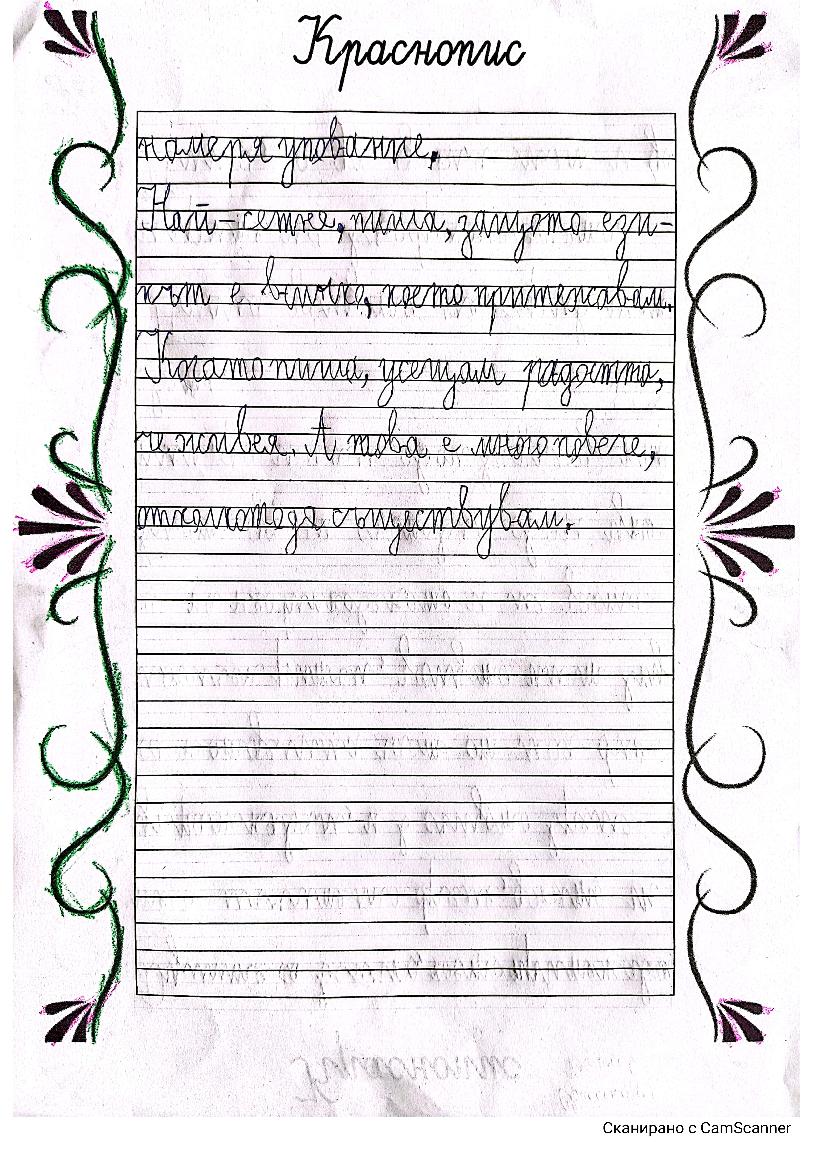 Краснопис
намеря упование.
Най-сетне, пиша, защото ези-
кът е всичко, което притежавам.
Когато пиша, усещам радостта,
че живея. А това е много повече,
отколкото да съществувам.
Сканирано с CamScanner